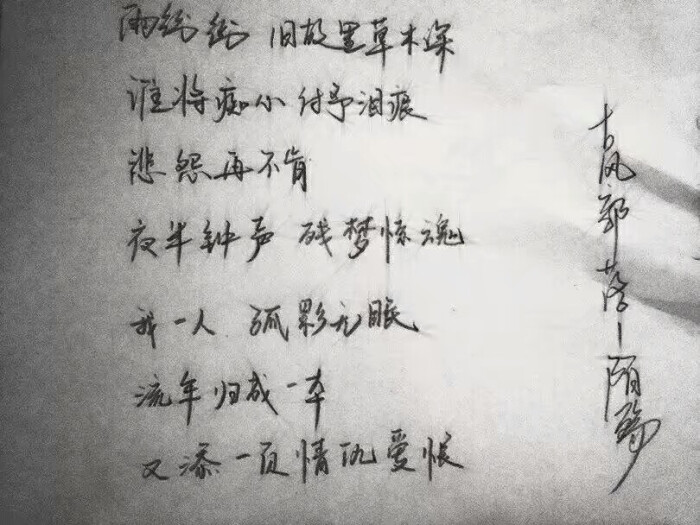 雨纷纷 旧故里草木深
谁将痴心付予泪痕
悲怨再不肯
夜半钟声 残梦惊魂
我一人 孤影无眠
流年归成一本
又添一页情仇爱恨
古风部落